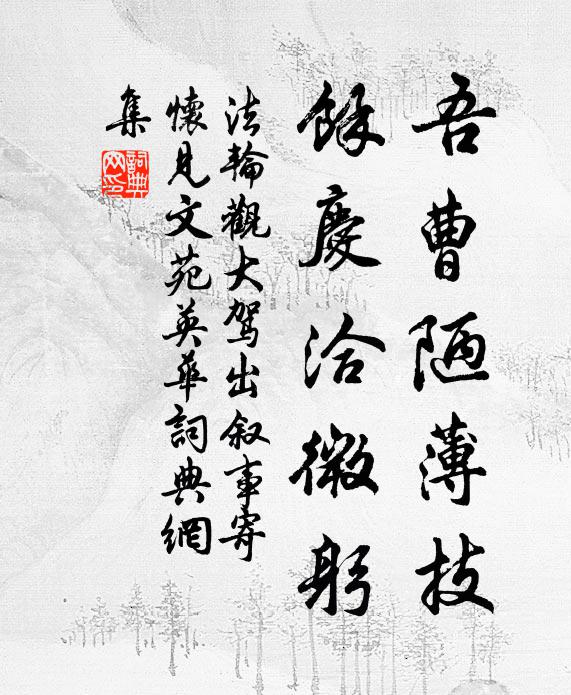 吾曹陋薄技
餘慶洽微躬
法輪觀大駕出叙事寄
懷見文苑英華詞典網
集
詞典網印